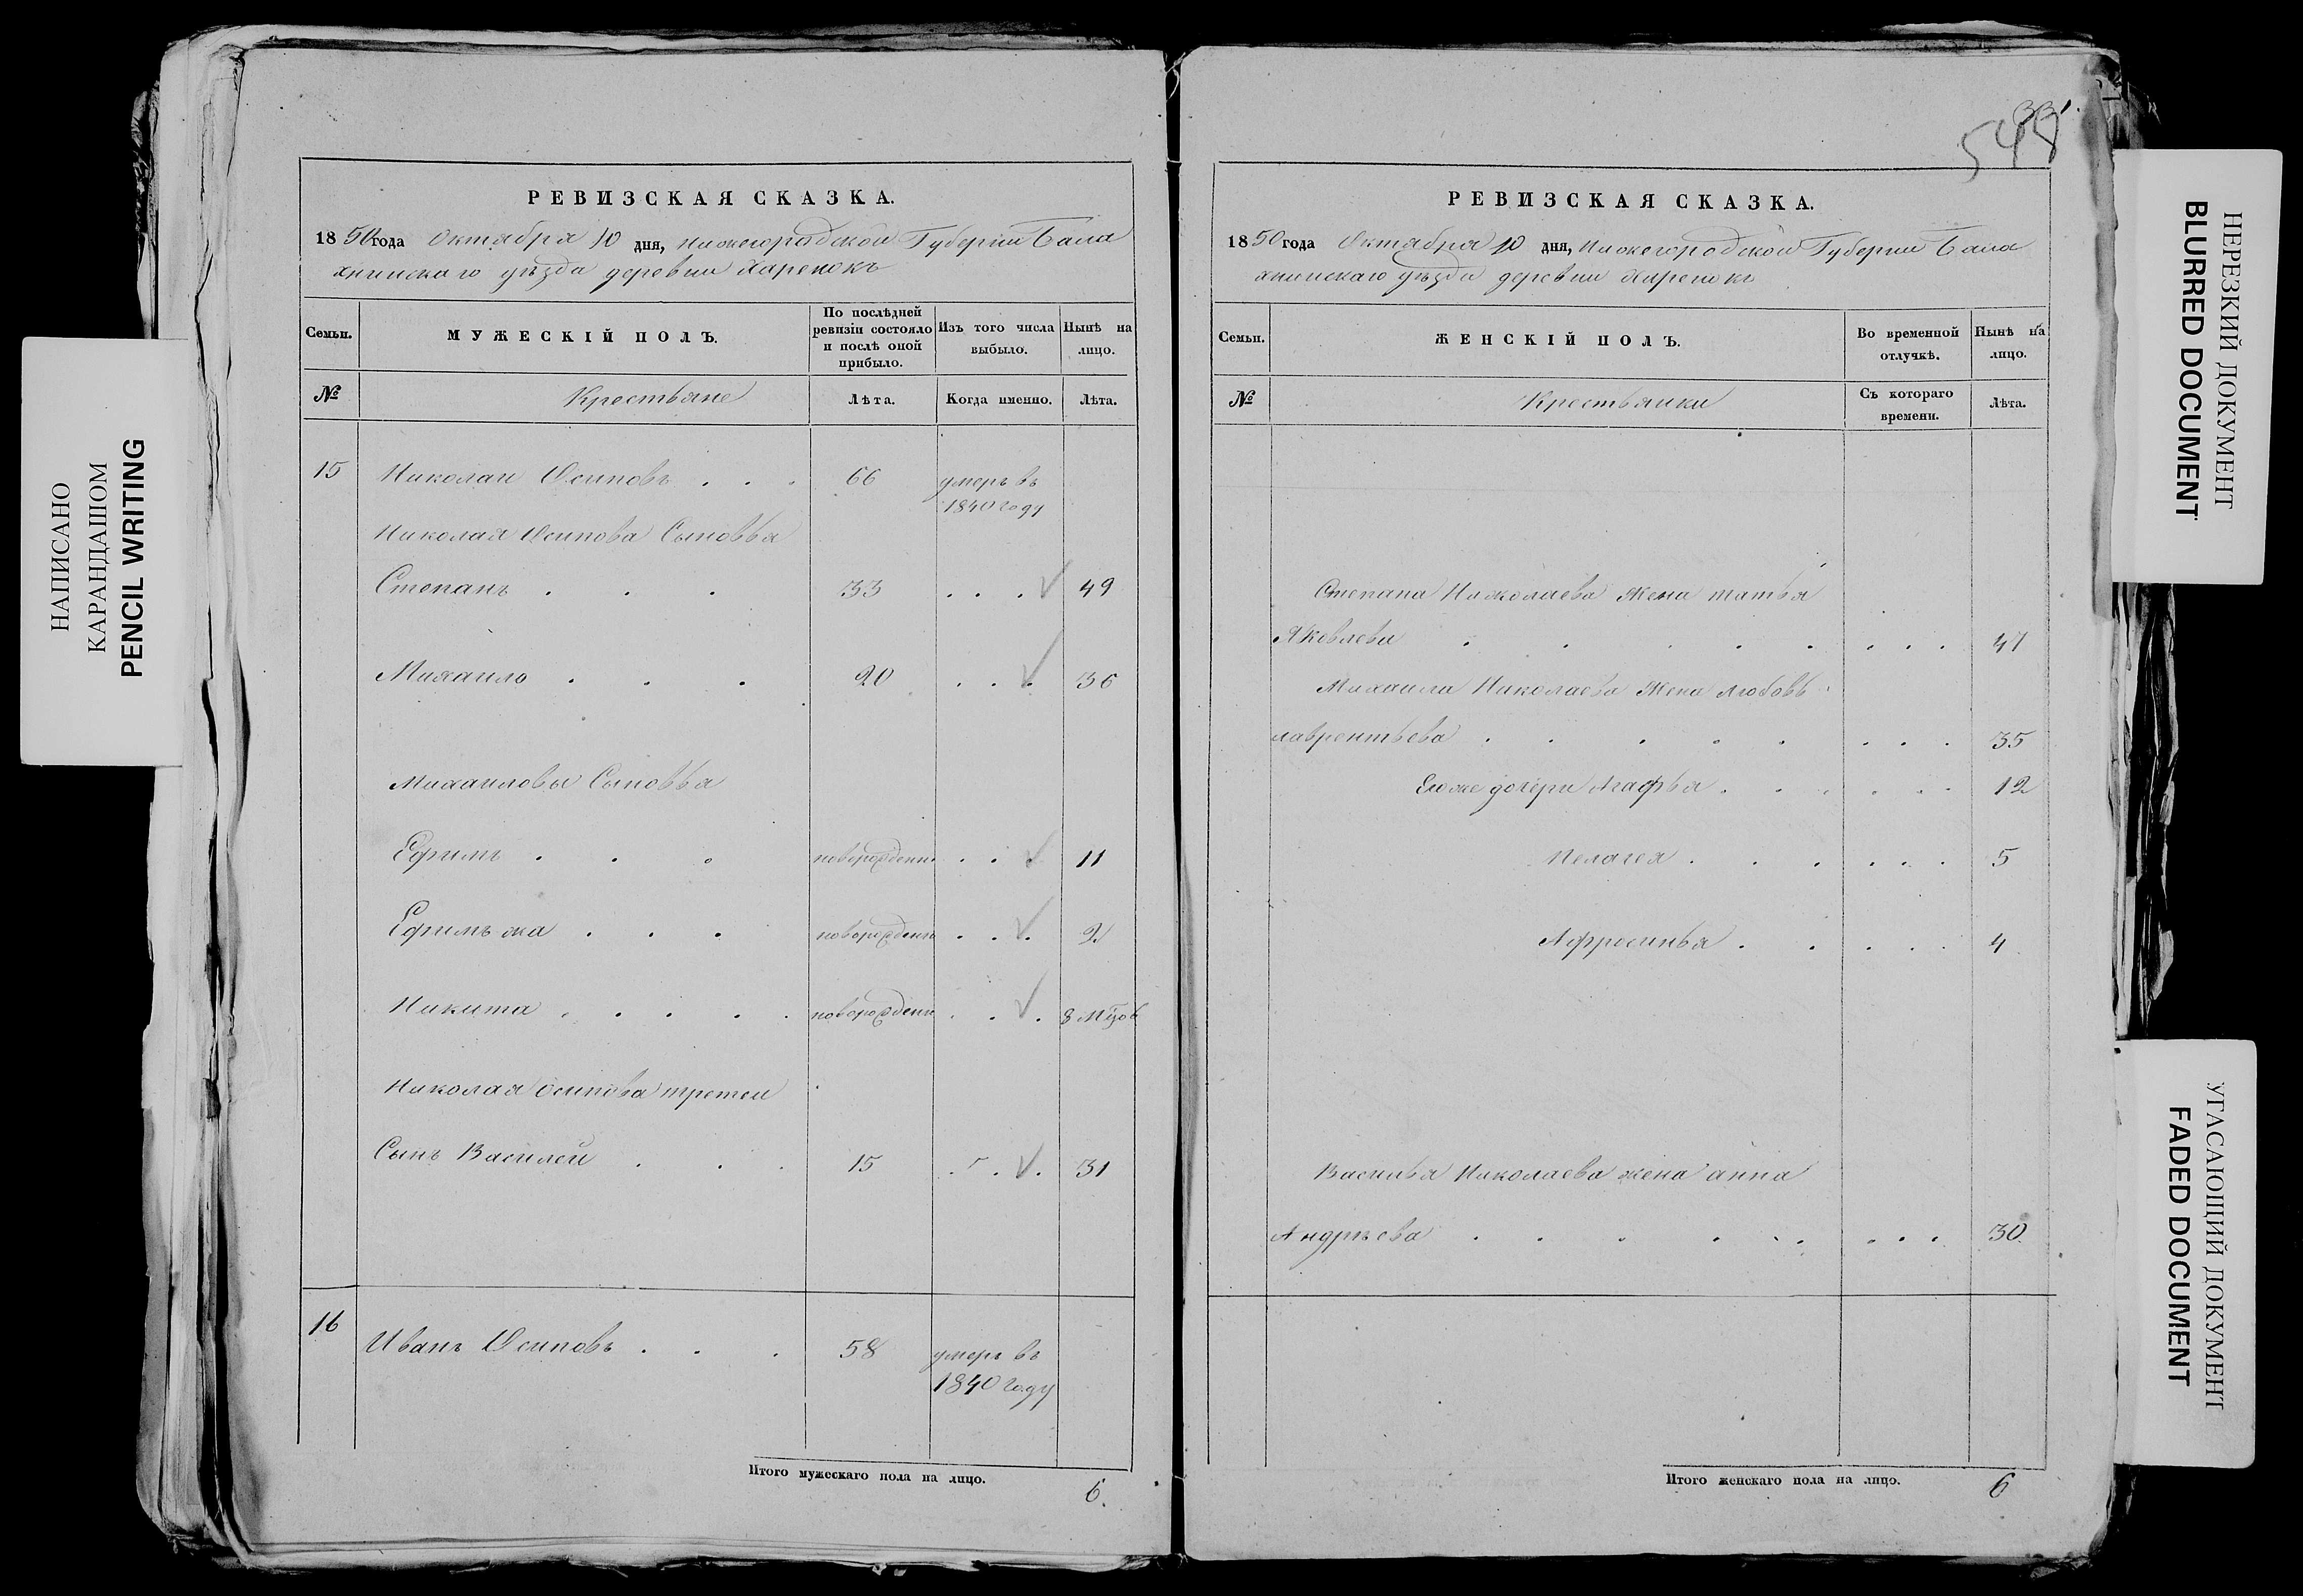 НАПИСАНО
КАРАНДАШОМ
PENCIL WRITING
РЕВИЗСКАЯ СКАЗКА.
1850 года Октября 10 дня, Нижегородской Губернии Бала
хнинскаго уѣзда деревни Харенокъ
Семьи.
МУЖЕСКІЙ ПОЛЪ.
По послѣдней ревизіи состояло и послѣ оной прибыло.
Изъ того числа выбыло.
Нынѣ на лицо.
№
Крестьяне
Лѣта.
Когда именно.
Лѣта.
15 Николай Осиповъ . . . 66 умеръ въ
1840 году
Николая Осипова Сыновья
Степанъ . . . 33 . . . √ 49
Михаило . . . 20 . . . √ 36
Михаиловы Сыновья
Ефимъ . . . новорожденн . . . √ 11
Ефимъ же . . . новорожденъ . . . √ 2
Никита . . . . . новорожден . . √ . 8 М҃цов
Николая Осипова третей
Сынъ Василей . . . 15 . . √ . 31
16
Иванъ Осиповъ . . . 58 умеръ въ
1840 году
Итого мужескаго пола на лицо. 6.
548
РЕВИЗСКАЯ СКАЗКА.
1850 года Октября 10 дня, Нижегородской Губернии Бала
хнинскаго уѣзда деревни Харенокъ
Семьи.
ЖЕНСКІЙ ПОЛЪ.
Во временной отлучкѣ.
Нынѣ на лицо.
№
Крестьянки
Съ котораго времени.
Лѣта.
Степана Николаева Жена татья
Яковлева . . . . . . . . 47
Михаила Николаева Жена любовь
лаврентьева . . . . . . . . 35
Еюже дочери Агафья . . . . . . 12
Пелагея . . . . . . 5
Афросинья . . . . . 4
Василья Николаева жена анна
Андрѣева . . . . . . . . . 30
Итого женскаго пола на лицо. 6
НЕРЕЗКИЙ ДОКУМЕНТ
BLURRED DOCUMENT
УГАСАЮЩИЙ ДОКУМЕНТ
FADED DOCUMENT